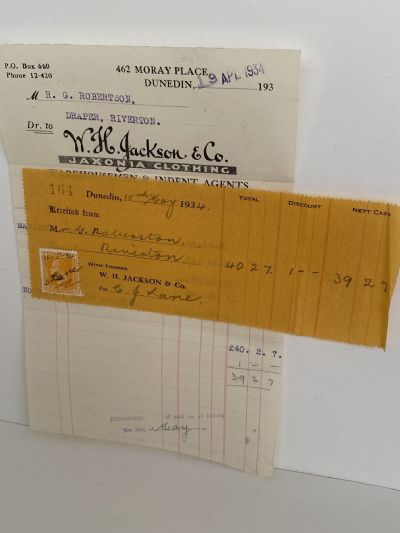 P.O. Box 660
Phone 12-420
462 MORAY PLACE,
DUNEDIN, 193
19 APL 1934
M R. G. ROBERTSON,
DRAPER, RIVERTON.
Dr. to
W.H. Jackson & Co.
JAXONIA CLOTHING
WAREHOUSEMEN & INDENT AGENTS
164
Dunedin, 15th May 1934.
TOTAL DISCOUNT NETT CASH
Received from
Mr G. Robertson.
Riverton
40 2 7. 1 - - 39 2 7
WITH THANKS
W. H. JACKSON & Co.
Per C J Lane.
£40. 2. 7.
1 - -
39 2 7
DISCOUNT: if paid on or before
the 19th of May